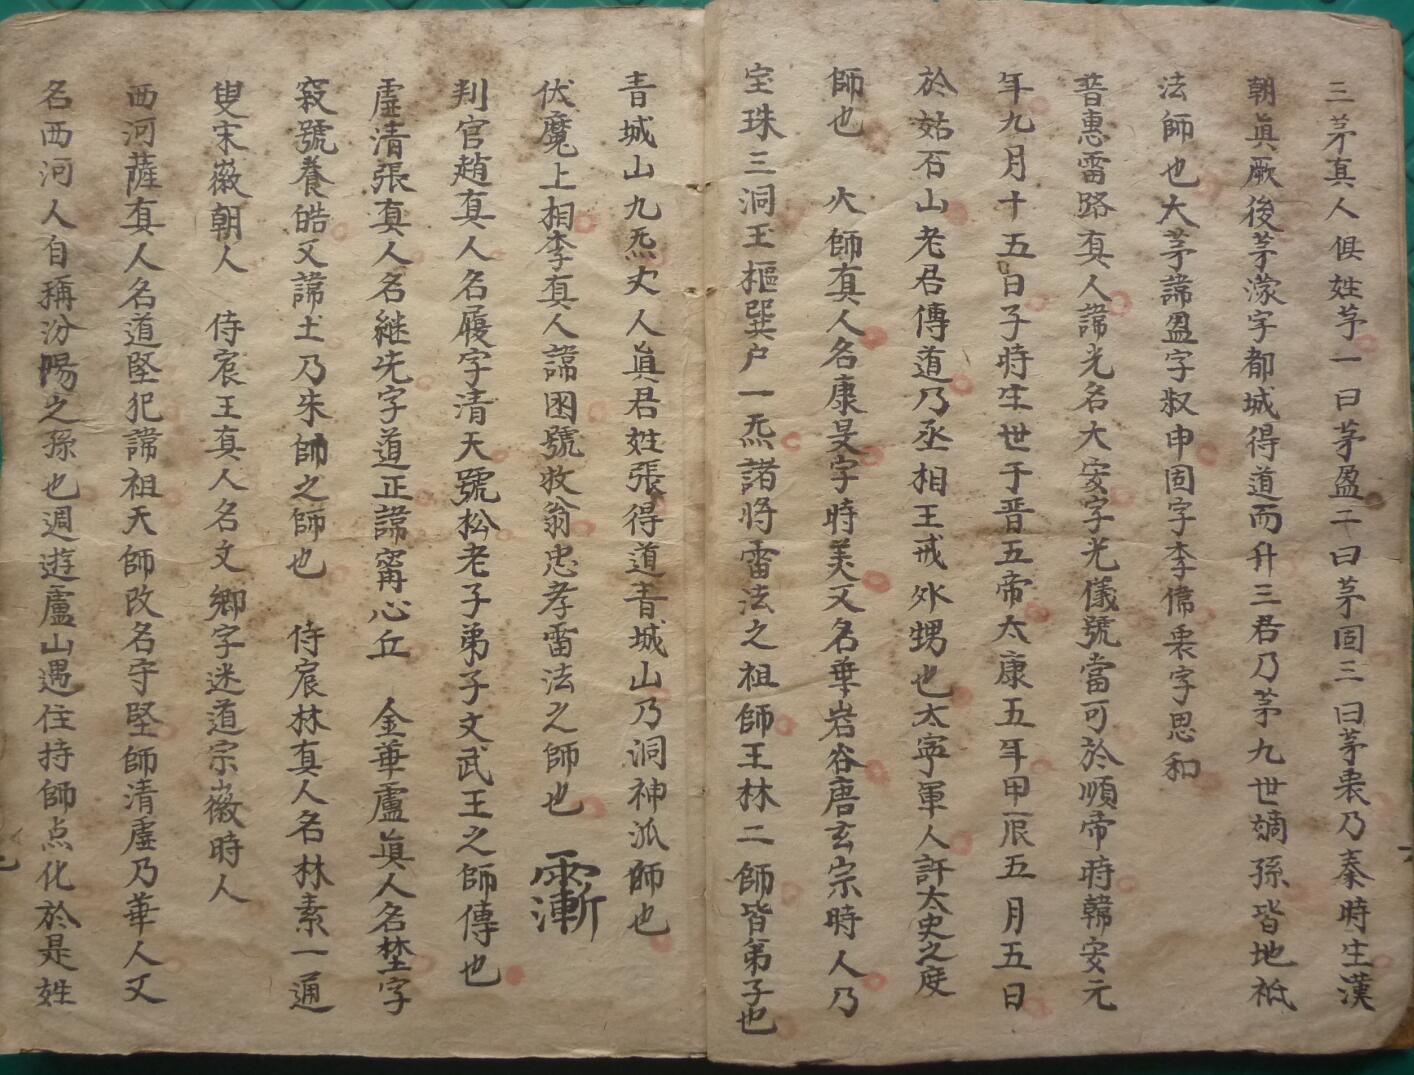 三茅真人俱姓茅一曰茅盈二曰茅固三曰茅衷乃秦時生漢
朝眞厥後茅濛字都城得道而升三君乃茅九世嫡孫皆地祇
法師也大茅諱盈字叔申固字季偉衷字思和
普惠雷路真人諱光名大安字光儀號當可於順帝時韓安元
年九月十五日子時生世于晋五帝太康五年甲辰五月五日
於姑石山老君傳道乃丞相王戒外甥也太寕軍人許太史之度
師也　火師真人名康旻字時美又名華岩谷唐玄宗時人乃
宝珠三洞玉樞巽户一炁諸將雷法之祖師王林二師皆弟子也
青城山九炁丈人眞君姓張得道青城山乃洞神派師也
伏魔上相李真人諱困號救翁忠孝雷法之師也
判官趙真人名履字清天號松老子弟子文武王之師傳也
虛清張真人名継先字道正諱寗心丘　金華盧眞人名埜字
寂號養皓又諱土乃朱師之師也　侍宸林真人名林素一通
叟宋徽朝人　侍宸王真人名文卿字迷道宗徽時人
西河薩真人名道堅犯諱祖天師改名守堅師清虛乃華人又
名西河人自稱汾陽之孫也週遊廬山遇住持師点化於是姓